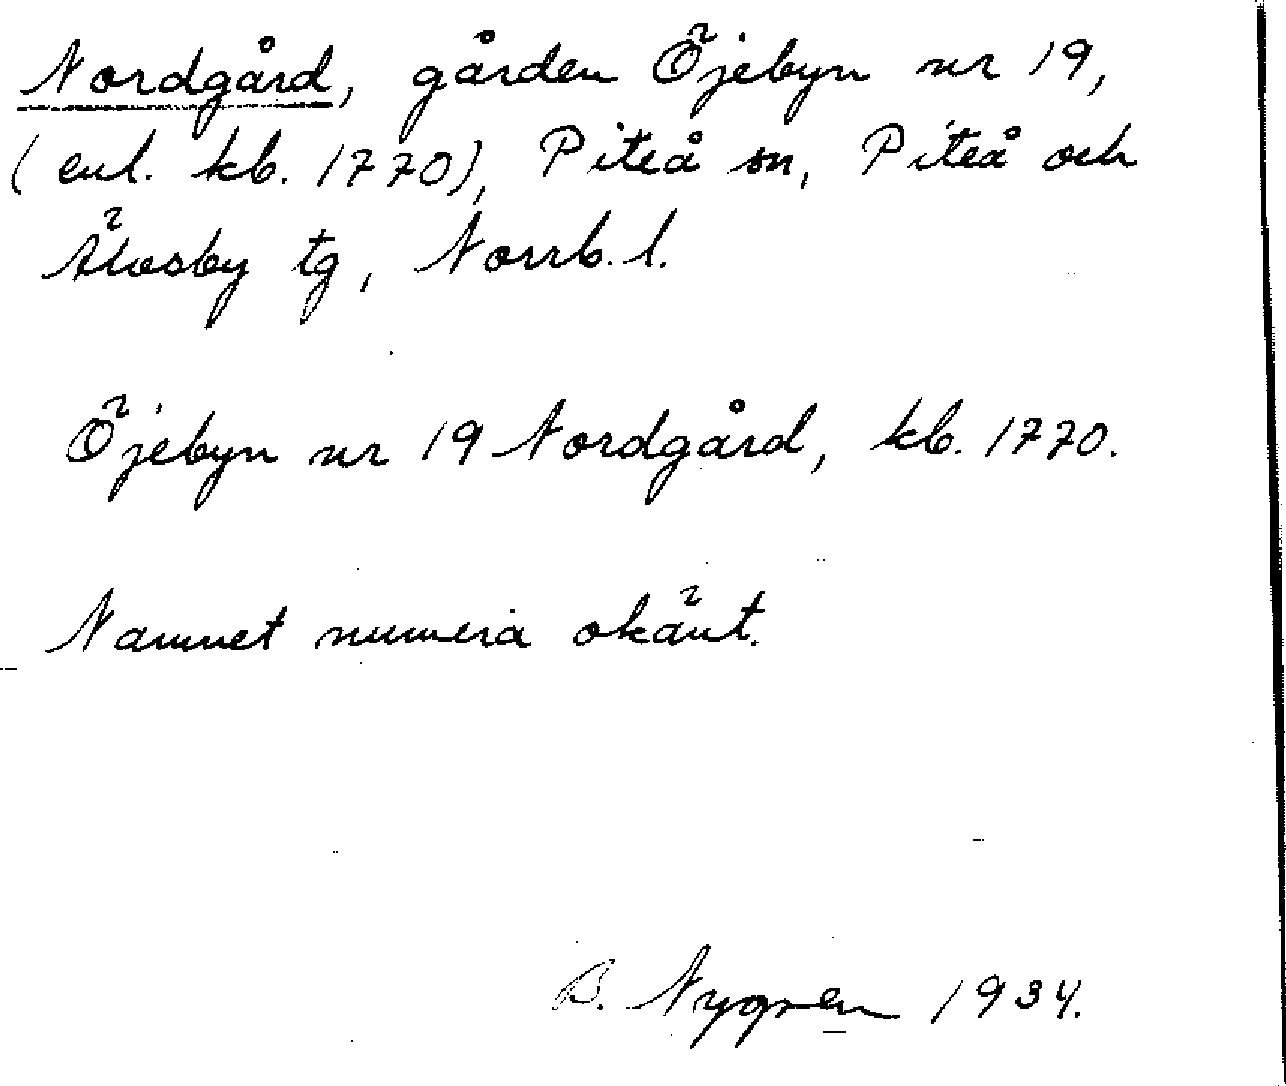 Nordgård, gården Öjebyn nr 19,
(enl. kb. 1770), Piteå sn, Piteå och
Älvsby tg, Norrb. l.
Öjebyn nr 19 Nordgård, kb. 1770.
Namnet numera okänt.
B. Nygren 1934.